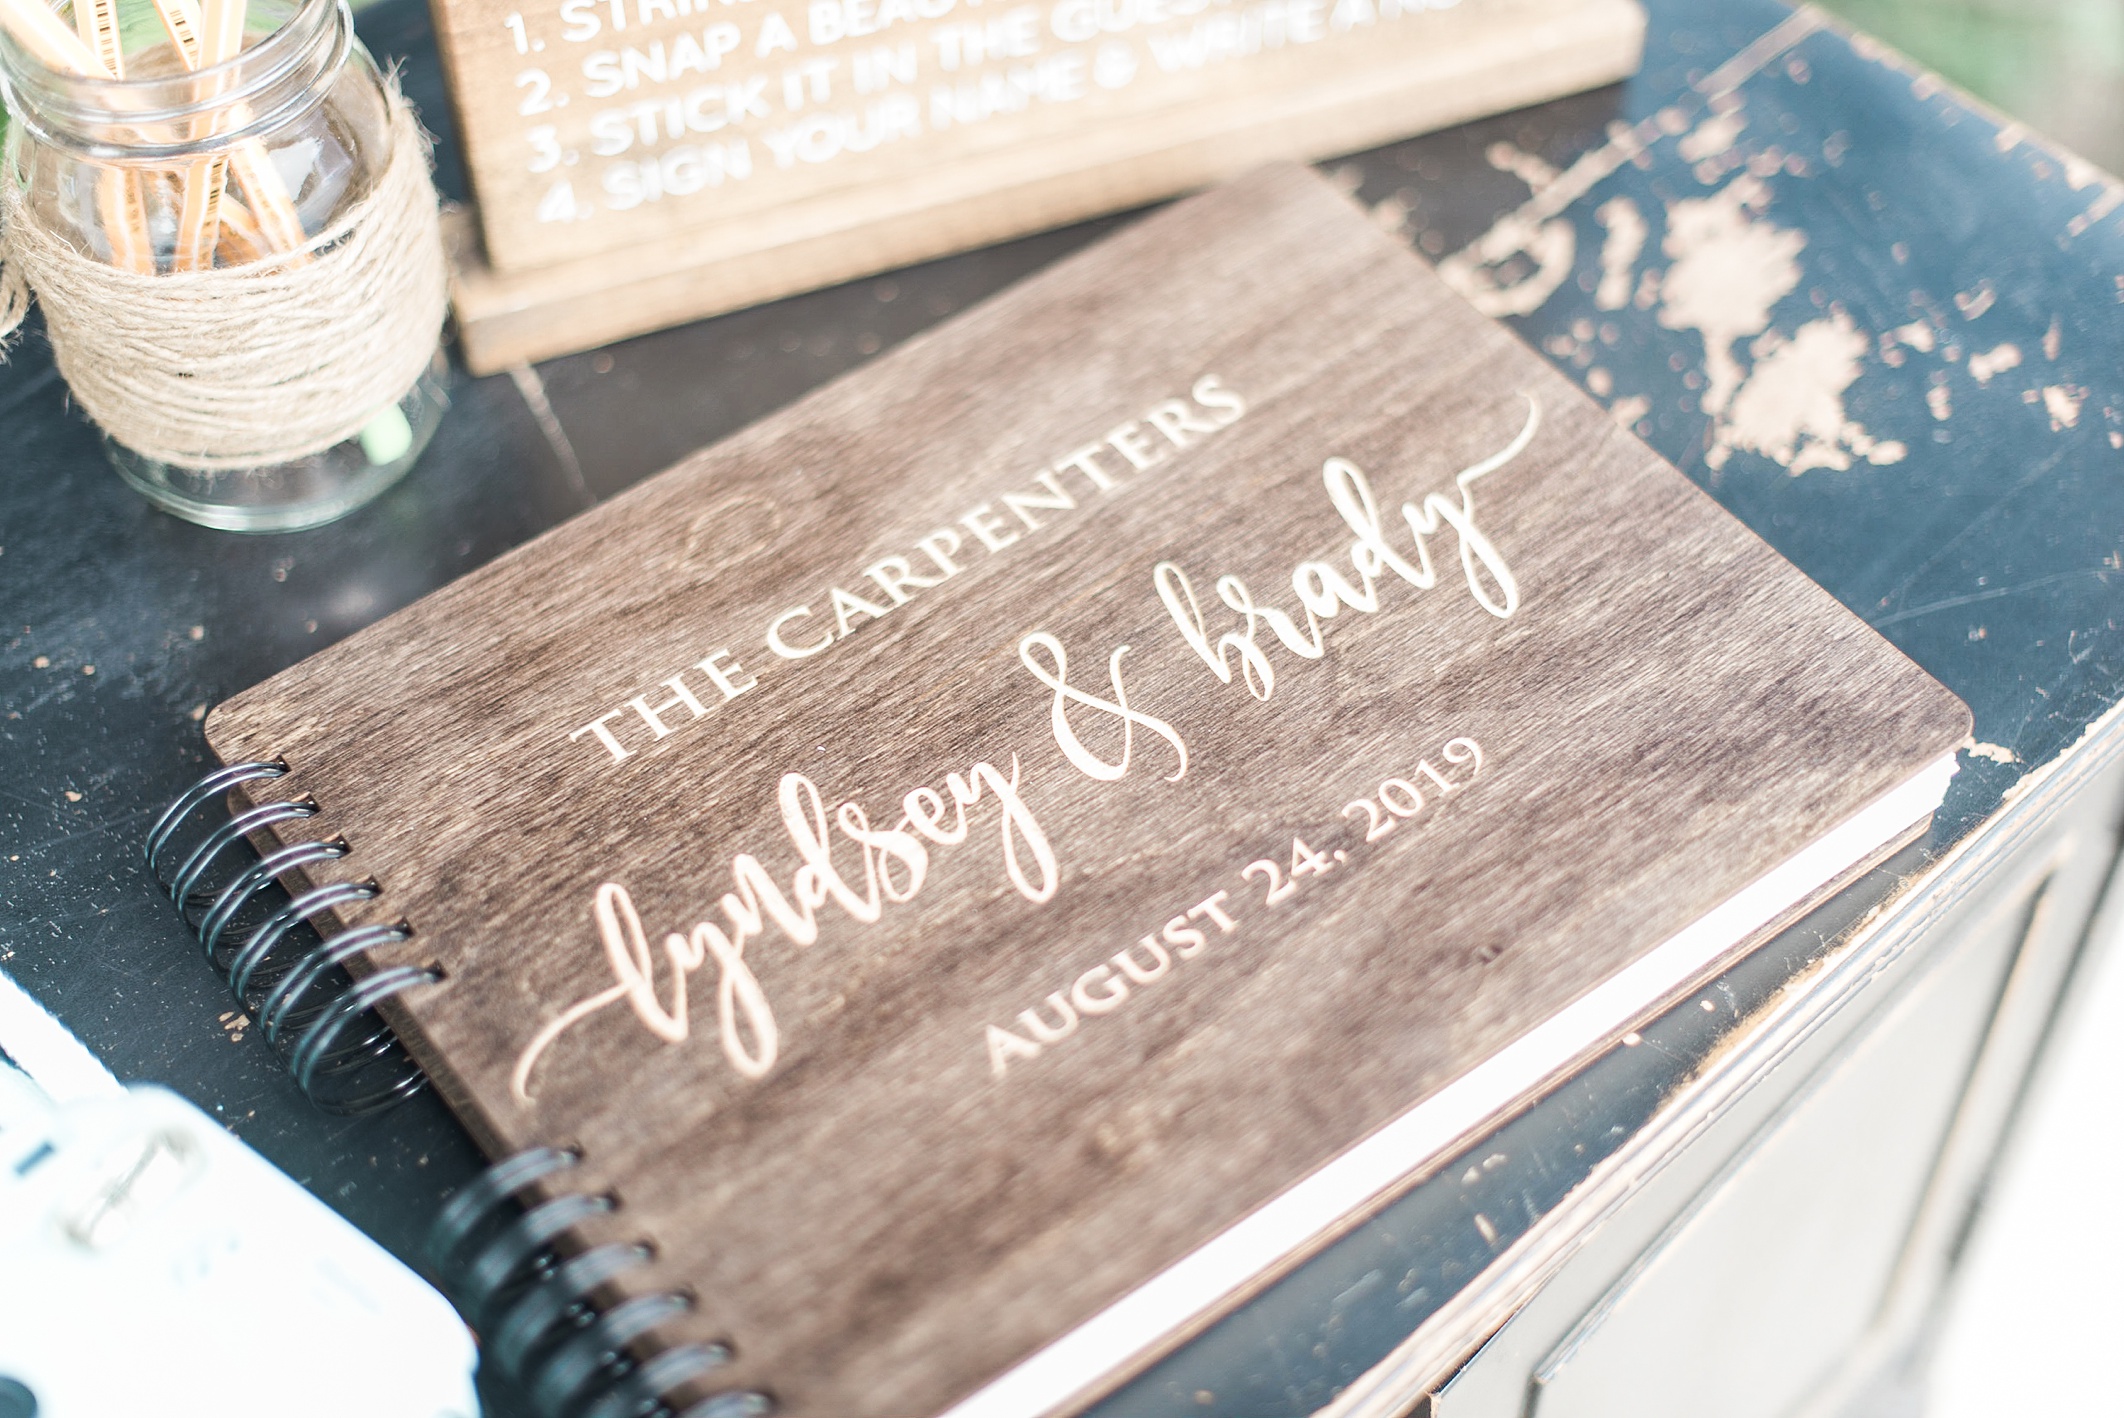 1.
2. SNAP A
3. STICK IT IN THE
4. SIGN YOUR NAME & WRITE A
THE CARPENTERS
lyndsey & brady
AUGUST 24, 2019